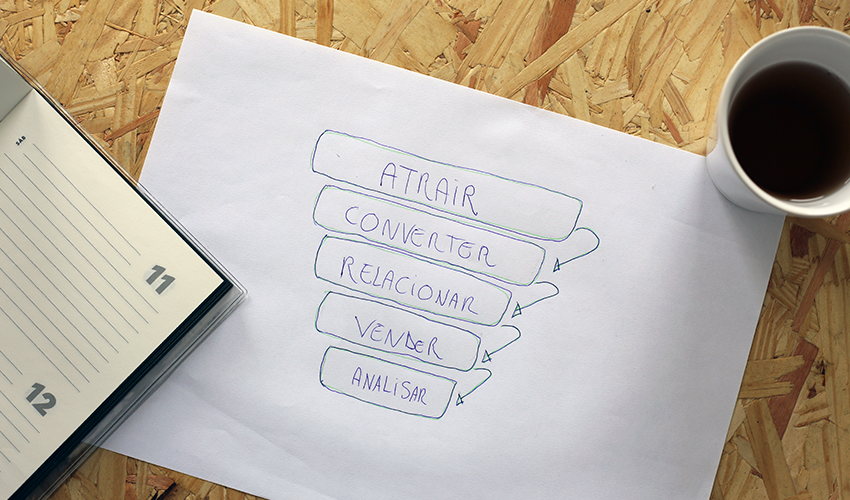 SÁB
11
12
ATRAIR
CONVERTER
RELACIONAR
VENDER
ANALISAR